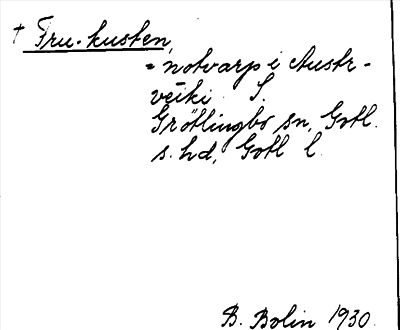 † Fru-kusten,
= notvarp i Austr-
veiki S.
Grötlingbo sn, Gotl.
s. hd, Gotl l.
B. Bolin 1930.